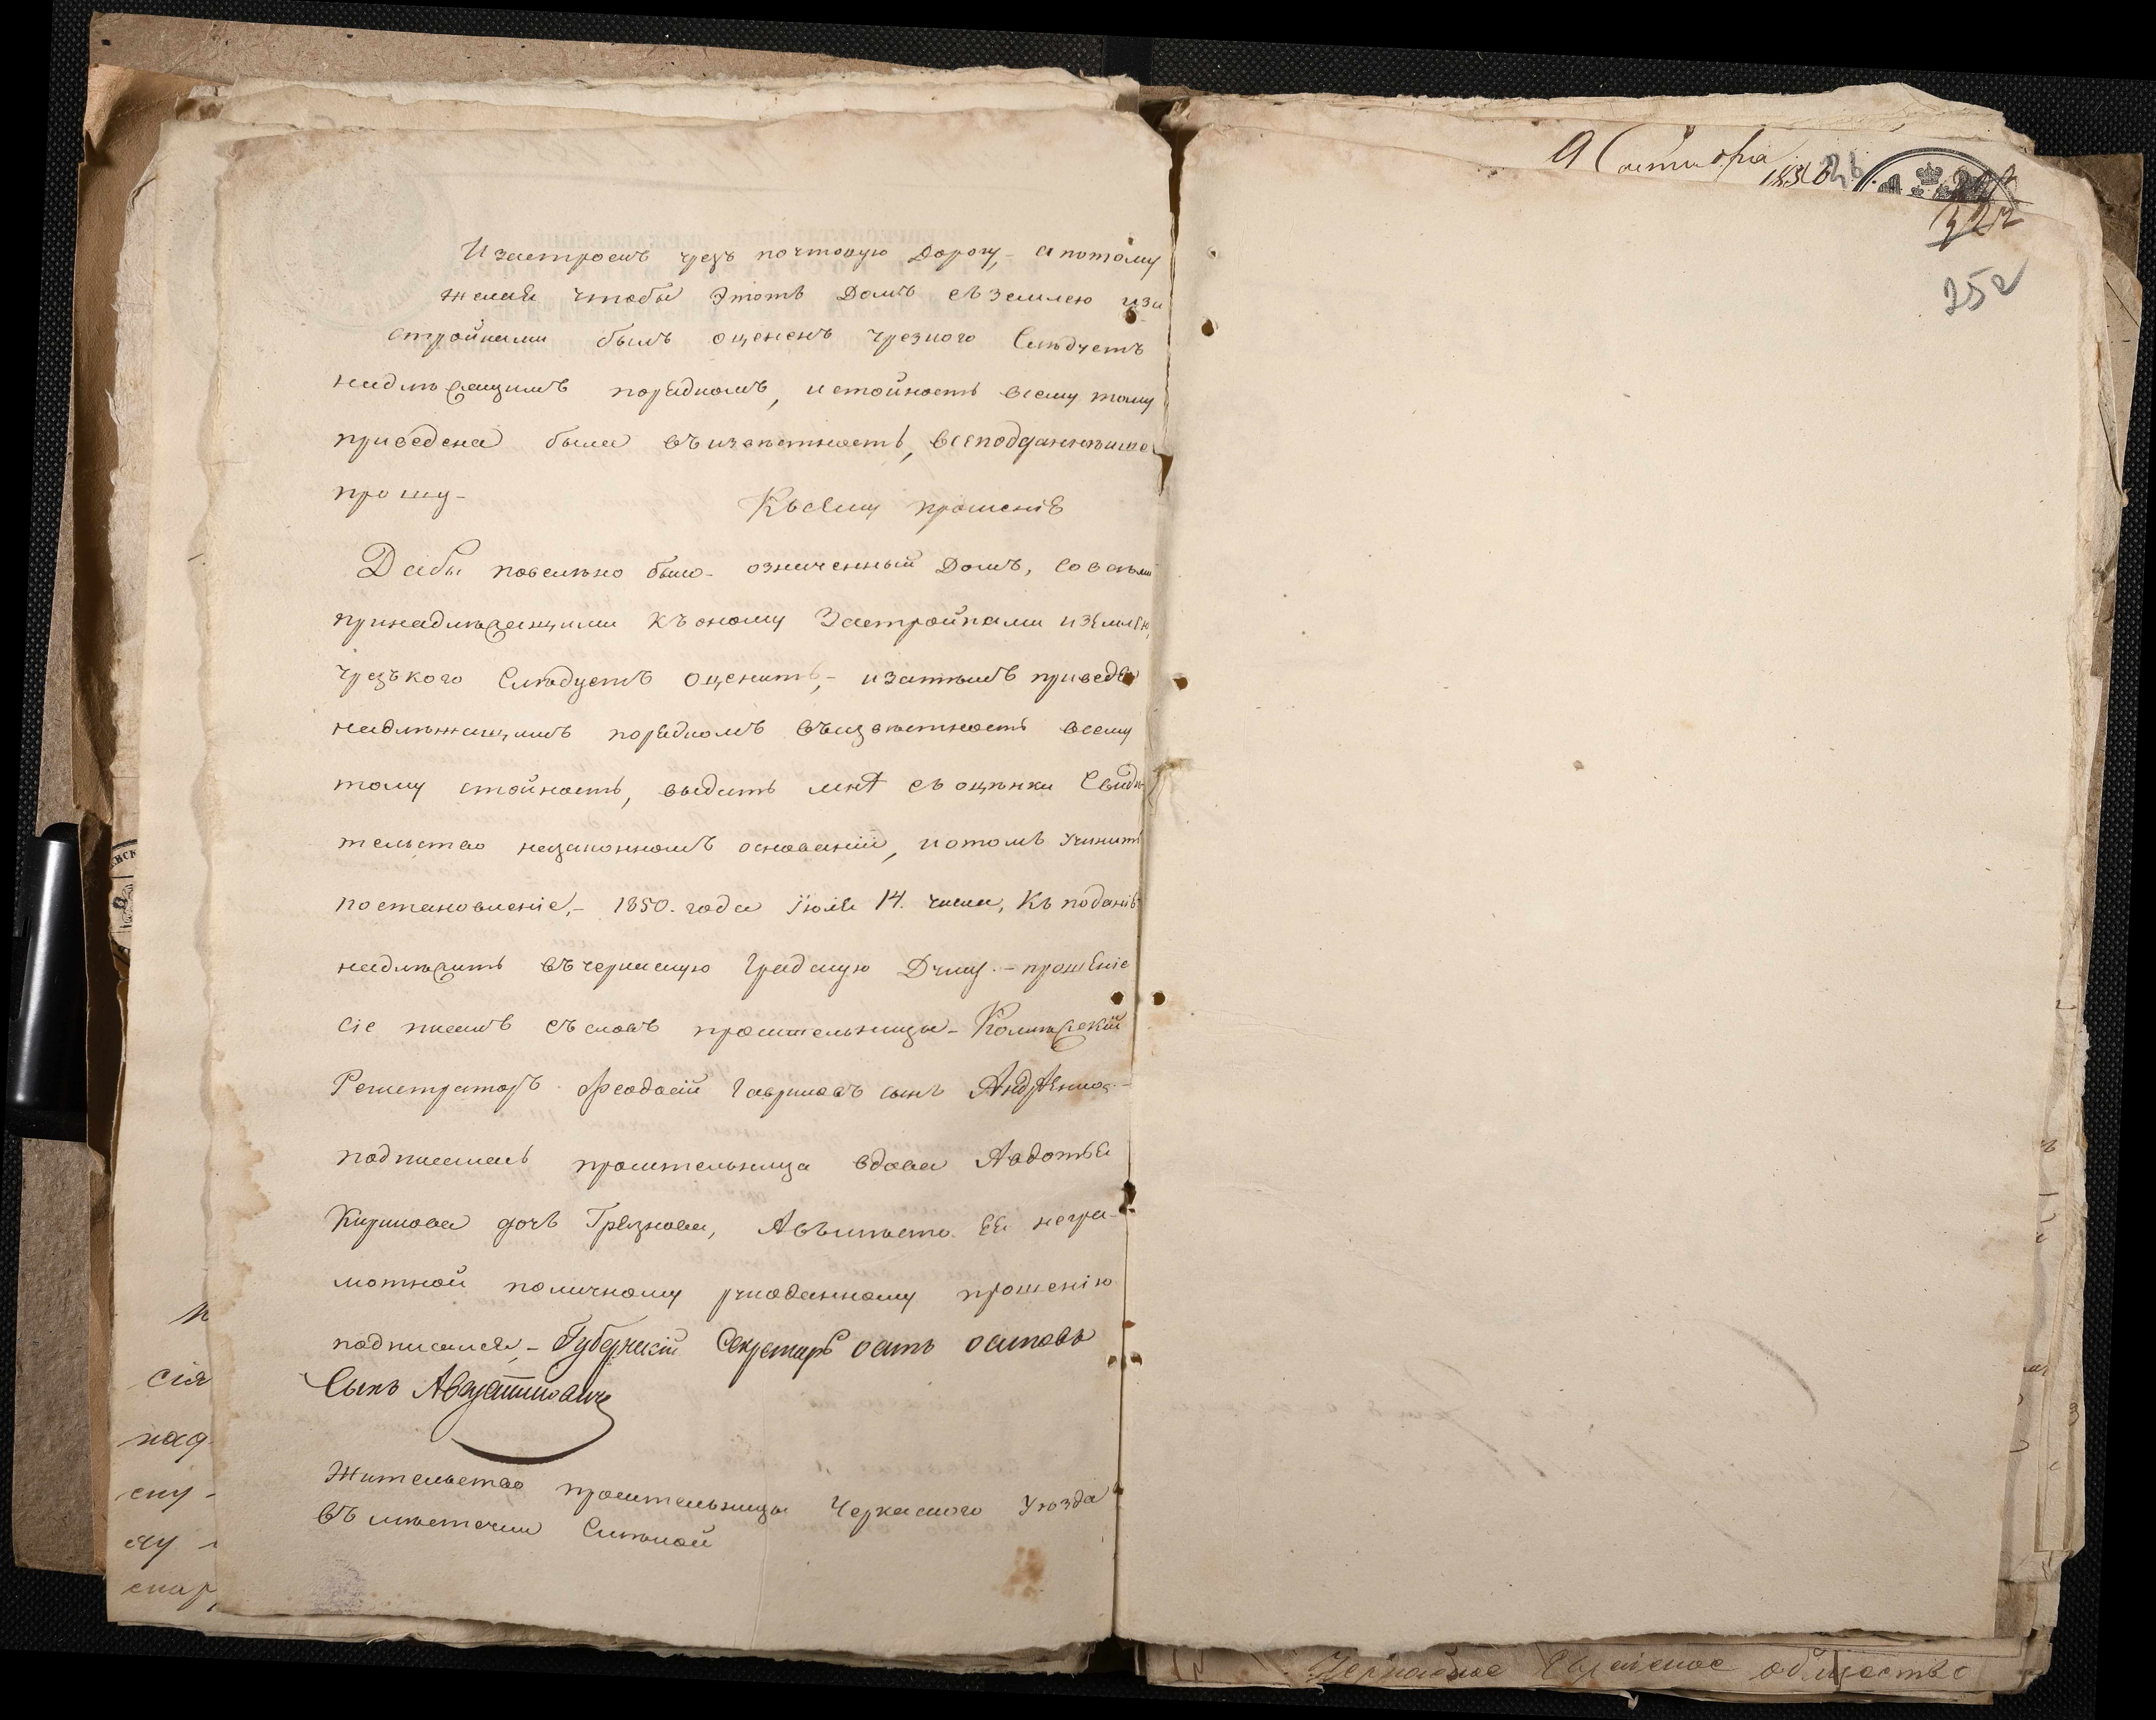 изастроемъ чрезъ почтовую дорогу,- а потому
желая чтобы этотъ домъ съ землею иза
стройками былъ оцененъ чрезкого Слѣдуетъ
надлѣжащимъ порядкомъ, и стойность всему тому
приведена была въ извѣстность, всеподданнѣише
прошу-
Къ сему прошеніе
Дабы повелѣно было- означенный домъ, со всѣми
принадлѣжащими къ оному Застройками и землѣю,
чрезъ кого Слѣдуетъ оценить,- и затѣмъ приведя
надлѣжащимъ порядкомъ въ извѣстность всему
тому стойность, выдать мнѣ съ оцѣнки Свидѣ
тельство на законномъ основаніи, и о томъ учинить
постановленіе,- 1850. года Іюля 14. числа, Къ поданію
надлѣжитъ въ черкаскую градскую Думу.- прошеніе
сіе писалъ съ словъ просительницы- Колѣжскій
Регистраторъ Феодосій Гавриловъ сынъ
подписалась просительница вдова Авдотья
Кирилова дочь Грязнова, А вмѣсто Ея негра-
мотной по личному рукоданному прошенію
подписался,- Губернскій Секретарь осипъ осиповъ
Сынъ
Жительство просительницы Черкаского уѣзда
въ мѣстечки Смѣлой
сія
над
сну-
спар
9 Октября
1850
322
252
Черкаское Еврейское общество